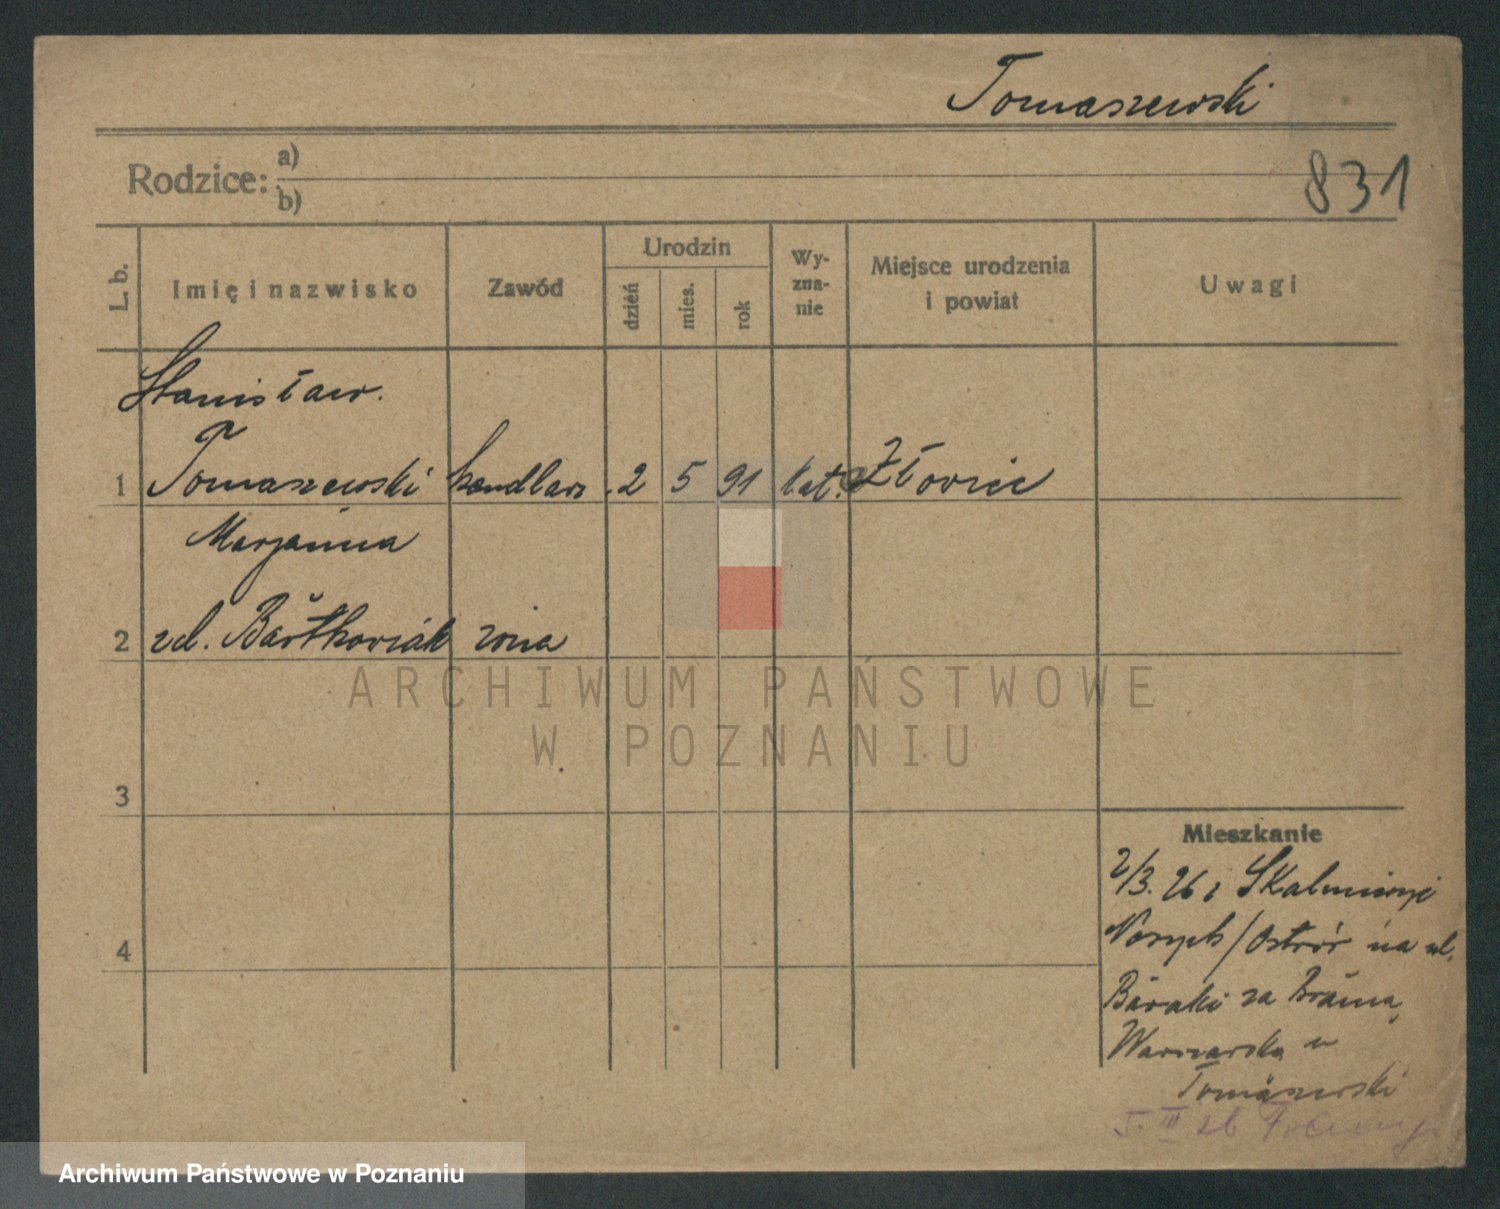 Tomaszewski
Rodzice: a)
b)
831
L. b.
Imię i nazwisko
Zawód
Urodzin
dzień
mies.
rok
Wy-
zna-
nie
Miejsce urodzenia
i powiat
Uwagi
Stanisław.
1 Tomaszewski handlarz 2 5 91 kat.
Marjanna
2 zd. Bartkowiak żona
ARCHIWUM PAŃSTWOWE
W POZNANIU
3
4
Mieszkanie
2/3. 26 z
/Ostrów na ul.
Baraki za Bramą
Warszawską u
Tomaszewski
5. III 26
Archiwum Państwowe w Poznaniu